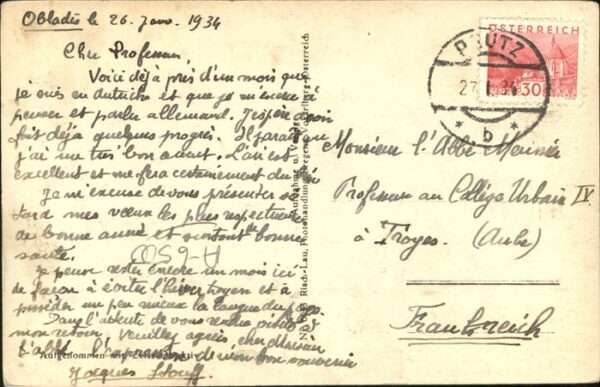 Obladis le 26. Janv. 1934
Cher Professeur,
Voici déjà près d'un mois que
je suis en Autriche et que je m'exerce à
penser et parler allemand. J'espère avoir
fait déjà quelques progrès. Il paraît que
j'ai un très bon accent. L'air est
excellent et me fera certainement du
Je m'excuse de vous présenter si
tard mes vœux les plus respectueux
de bonne année et surtout de bonne
santé.
Je pense rester encore un mois ici
de façon à éviter l'hiver troyen et à
posséder un peu mieux la langue du pays.
Dans l'attente de vous rendre visite à
mon retour, Veuillez agréer, cher Monsieur
l'abbé, l'expression de mon bon souvenir
Jacques
H-65
Aufgenommen
Risch-Lau, Photohandlung, Bregenz
ÖSTERREICH
30
PRUTZ
27. I. 34
* b *
Monsieur l'Abbé
Professeur au Collège Urbain IV
à Troyes. (Aube)
Frankreich